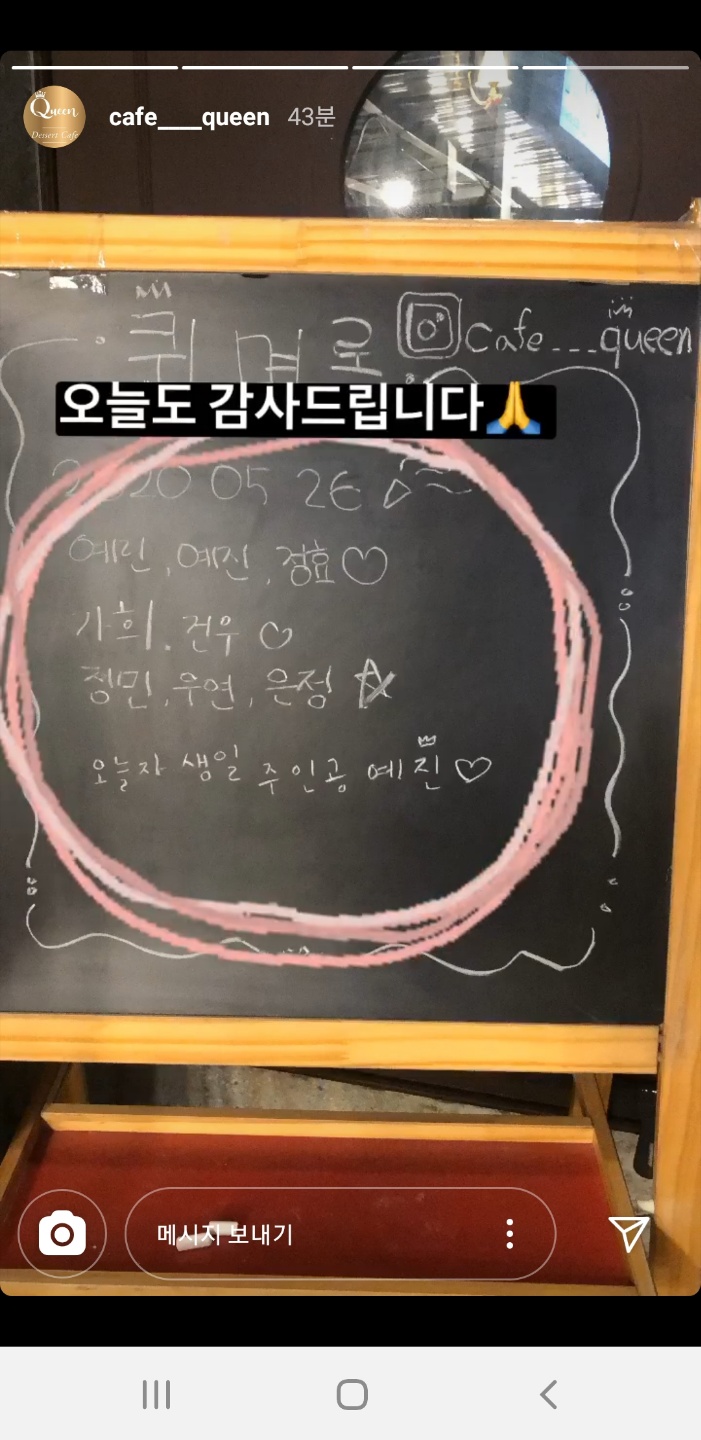 Queen
Dessert Cafe
cafe___queen 43분
퀸 명로 cafe___queen
오늘도 감사드립니다🙏
2020 05 26
예린, 예진, 정효♡
가희. 건우 ♡
정민, 우연, 은정 ☆
오늘자 생일 주인공 예진♡
메시지 보내기